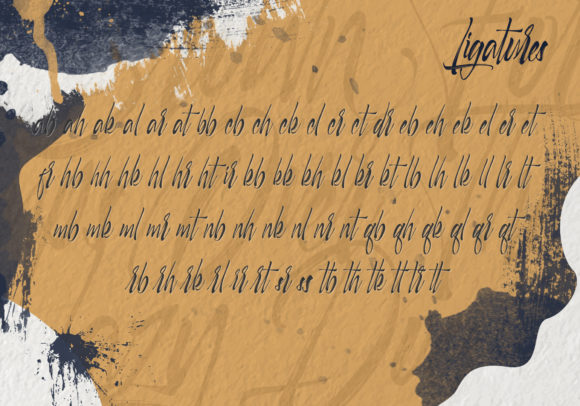 Ligatures
ab ah ak al ar at bb cb ch ck cl cr ct dr eb eh ek el er et
fr hb hh hk hl hr ht ir kb kk kh kl kr kt lb lh lk ll lr lt
mb mk ml mr mt nb nh nk nl nr nt qb qh qk ql qr qt
rb rh rk rl rr rt sr ss tb th tk tl tr tt